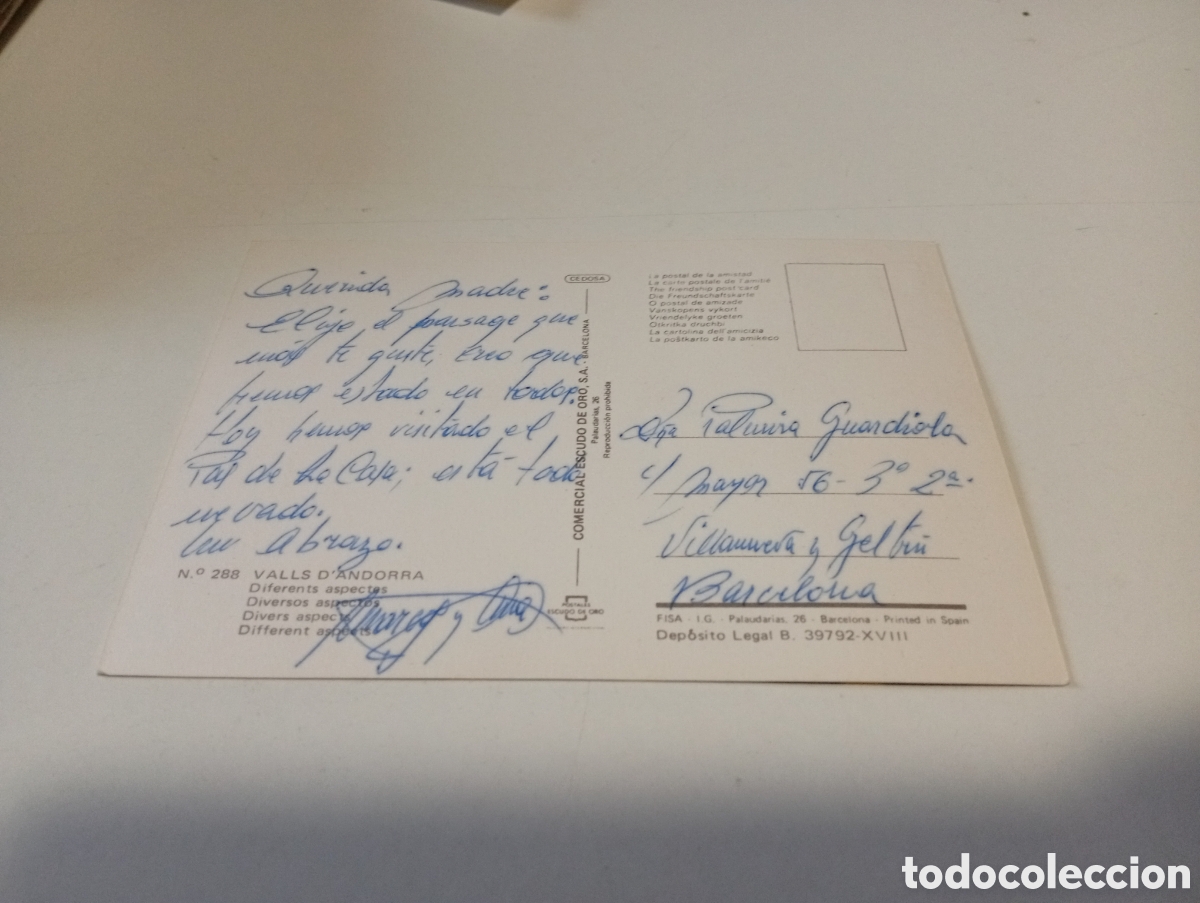 Querida madre:
Elijo el paisage que
más te guste, creo que
hemos estado en todos.
Hoy hemos visitado el
Pas de La Casa; está todo
nevado.
Un Abrazo.
y Ana
N.º 288 VALLS D'ANDORRA
Diferents aspectes
Diversos aspectos
Divers aspects
Different aspects
CEDOSA
COMERCIAL ESCUDO DE ORO, S.A. - BARCELONA
Palaudarias, 26
Reproducción prohibida
POSTALES
ESCUDO DE ORO
La postal de la amistad
La carte postale de l'amitié
The friendship post card
Die Freundschaftskarte
O postal de amizade
Vanskapens vykort
Vriendelyke groeten
Otkritka druchbi
La cartolina dell'amicizia
La poŝtkarto de la amikeco
Dña Palmira Guardiola
c/ mayor 56 - 3º 2ª.
Villanueva y Geltrú
Barcelona
FISA - I.G. - Palaudarias, 26 - Barcelona - Printed in Spain
Depósito Legal B. 39792-XVIII
todocoleccion